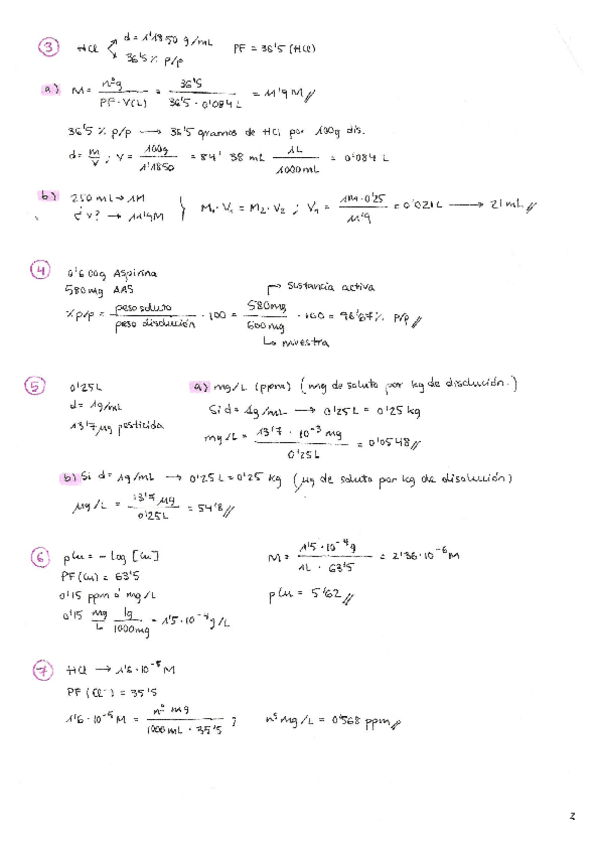 3 HCl d = 1'1850 g/mL 36'5% p/p PF = 36'5 (HCl)
a) M = nºg / PF · V(L) = 36'5 / 36'5 · 0'084 L = 11'9 M //
36'5 % p/p → 36'5 gramos de HCl por 100g dis.
d = m/V ; V = 100g / 1'1850 = 84'38 mL 1L / 1000 mL = 0'084 L
b) 250 mL → 1M
¿V? → 11'9M } M₁ · V₁ = M₂ · V₂ ; V₁ = 1M · 0'25 / 11'9 = 0'021L → 21 mL //
4 0'600g Aspirina
580 mg AAS → sustancia activa
% p/p = peso soluto / peso disolución · 100 = 580mg / 600mg · 100 = 96'67% p/p //
↳ muestra
5 0'25L a) mg/L (ppm) (mg de soluto por kg de disolución.)
d = 1g/mL Si d = 1g/mL → 0'25L = 0'25 kg
13'7 µg pesticida mg/L = 13'7 · 10⁻³ mg / 0'25L = 0'0548 //
b) Si d = 1g/mL → 0'25L = 0'25 kg (µg de soluto por kg de disolución)
µg/L = 13'7 µg / 0'25L = 54'8 //
6 pCu = - log [Cu] M = 1'5 · 10⁻⁴g / 1L · 63'5 = 2'36 · 10⁻⁶ M
PF (Cu) = 63'5
0'15 ppm ó mg/L pCu = 5'62 //
0'15 mg/L 1g / 1000mg = 1'5 · 10⁻⁴ g/L
7 HCl → 1'6 · 10⁻⁵ M
PF (Cl⁻) = 35'5
1'6 · 10⁻⁵ M = nº mg / 1000 mL · 35'5 ; nº mg/L = 0'568 ppm //
2